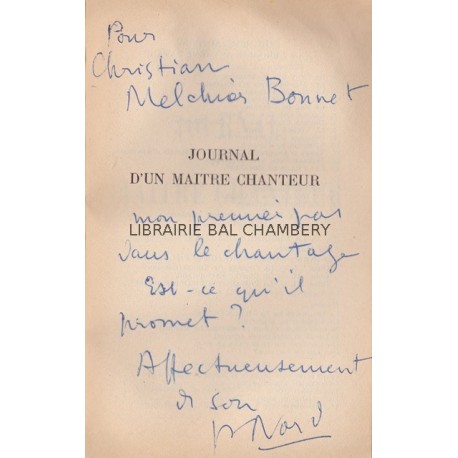 Pour
Christian
Melchior Bonnet
JOURNAL
D'UN MAITRE CHANTEUR
mon premier pas
LIBRAIRIE BAL CHAMBERY
dans le chantage
Est-ce qu'il
promet ?
Affectueusement
de son
Nord